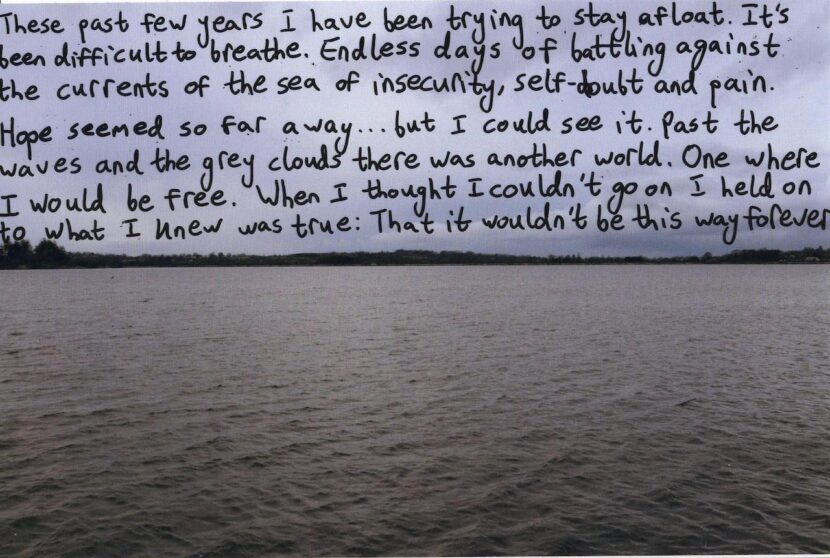 These past few years I have been trying to stay afloat. It's
been difficult to breathe. Endless days of battling against
the currents of the sea of insecurity, self-doubt and pain.
Hope seemed so far away... but I could see it. Past the
waves and the grey clouds there was another world. One where
I would be free. When I thought I couldn't go on I held on
to what I knew was true: That it wouldn't be this way forever